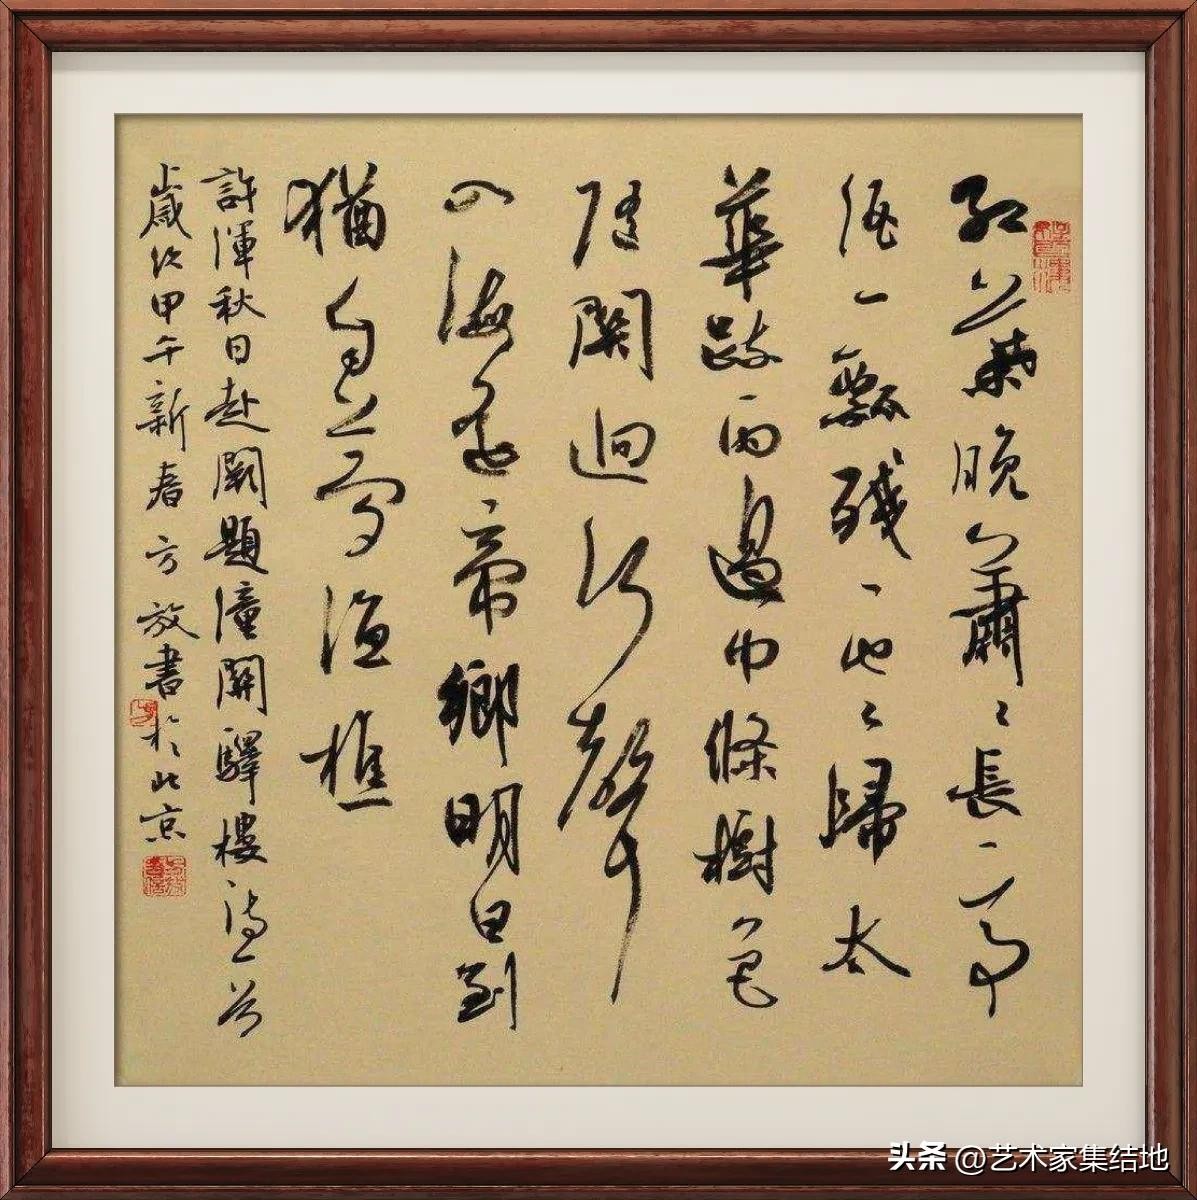 紅葉晚蕭〻長亭
酒一瓢殘雲歸太
華疏雨過中條樹色
隨關迥河聲
入海遙帝鄉明日到
猶自夢漁樵
許渾秋日赴闕題潼關驛樓詩一首
歲次甲午新春方放書於北京
头条 @艺术家集结地